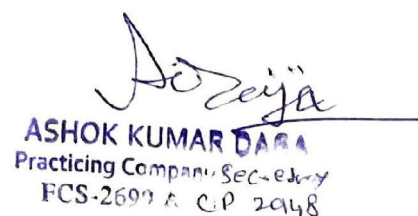 ASHOK KUMAR DAGA
Practicing Company Secretary
FCS-2699 & CP 2948